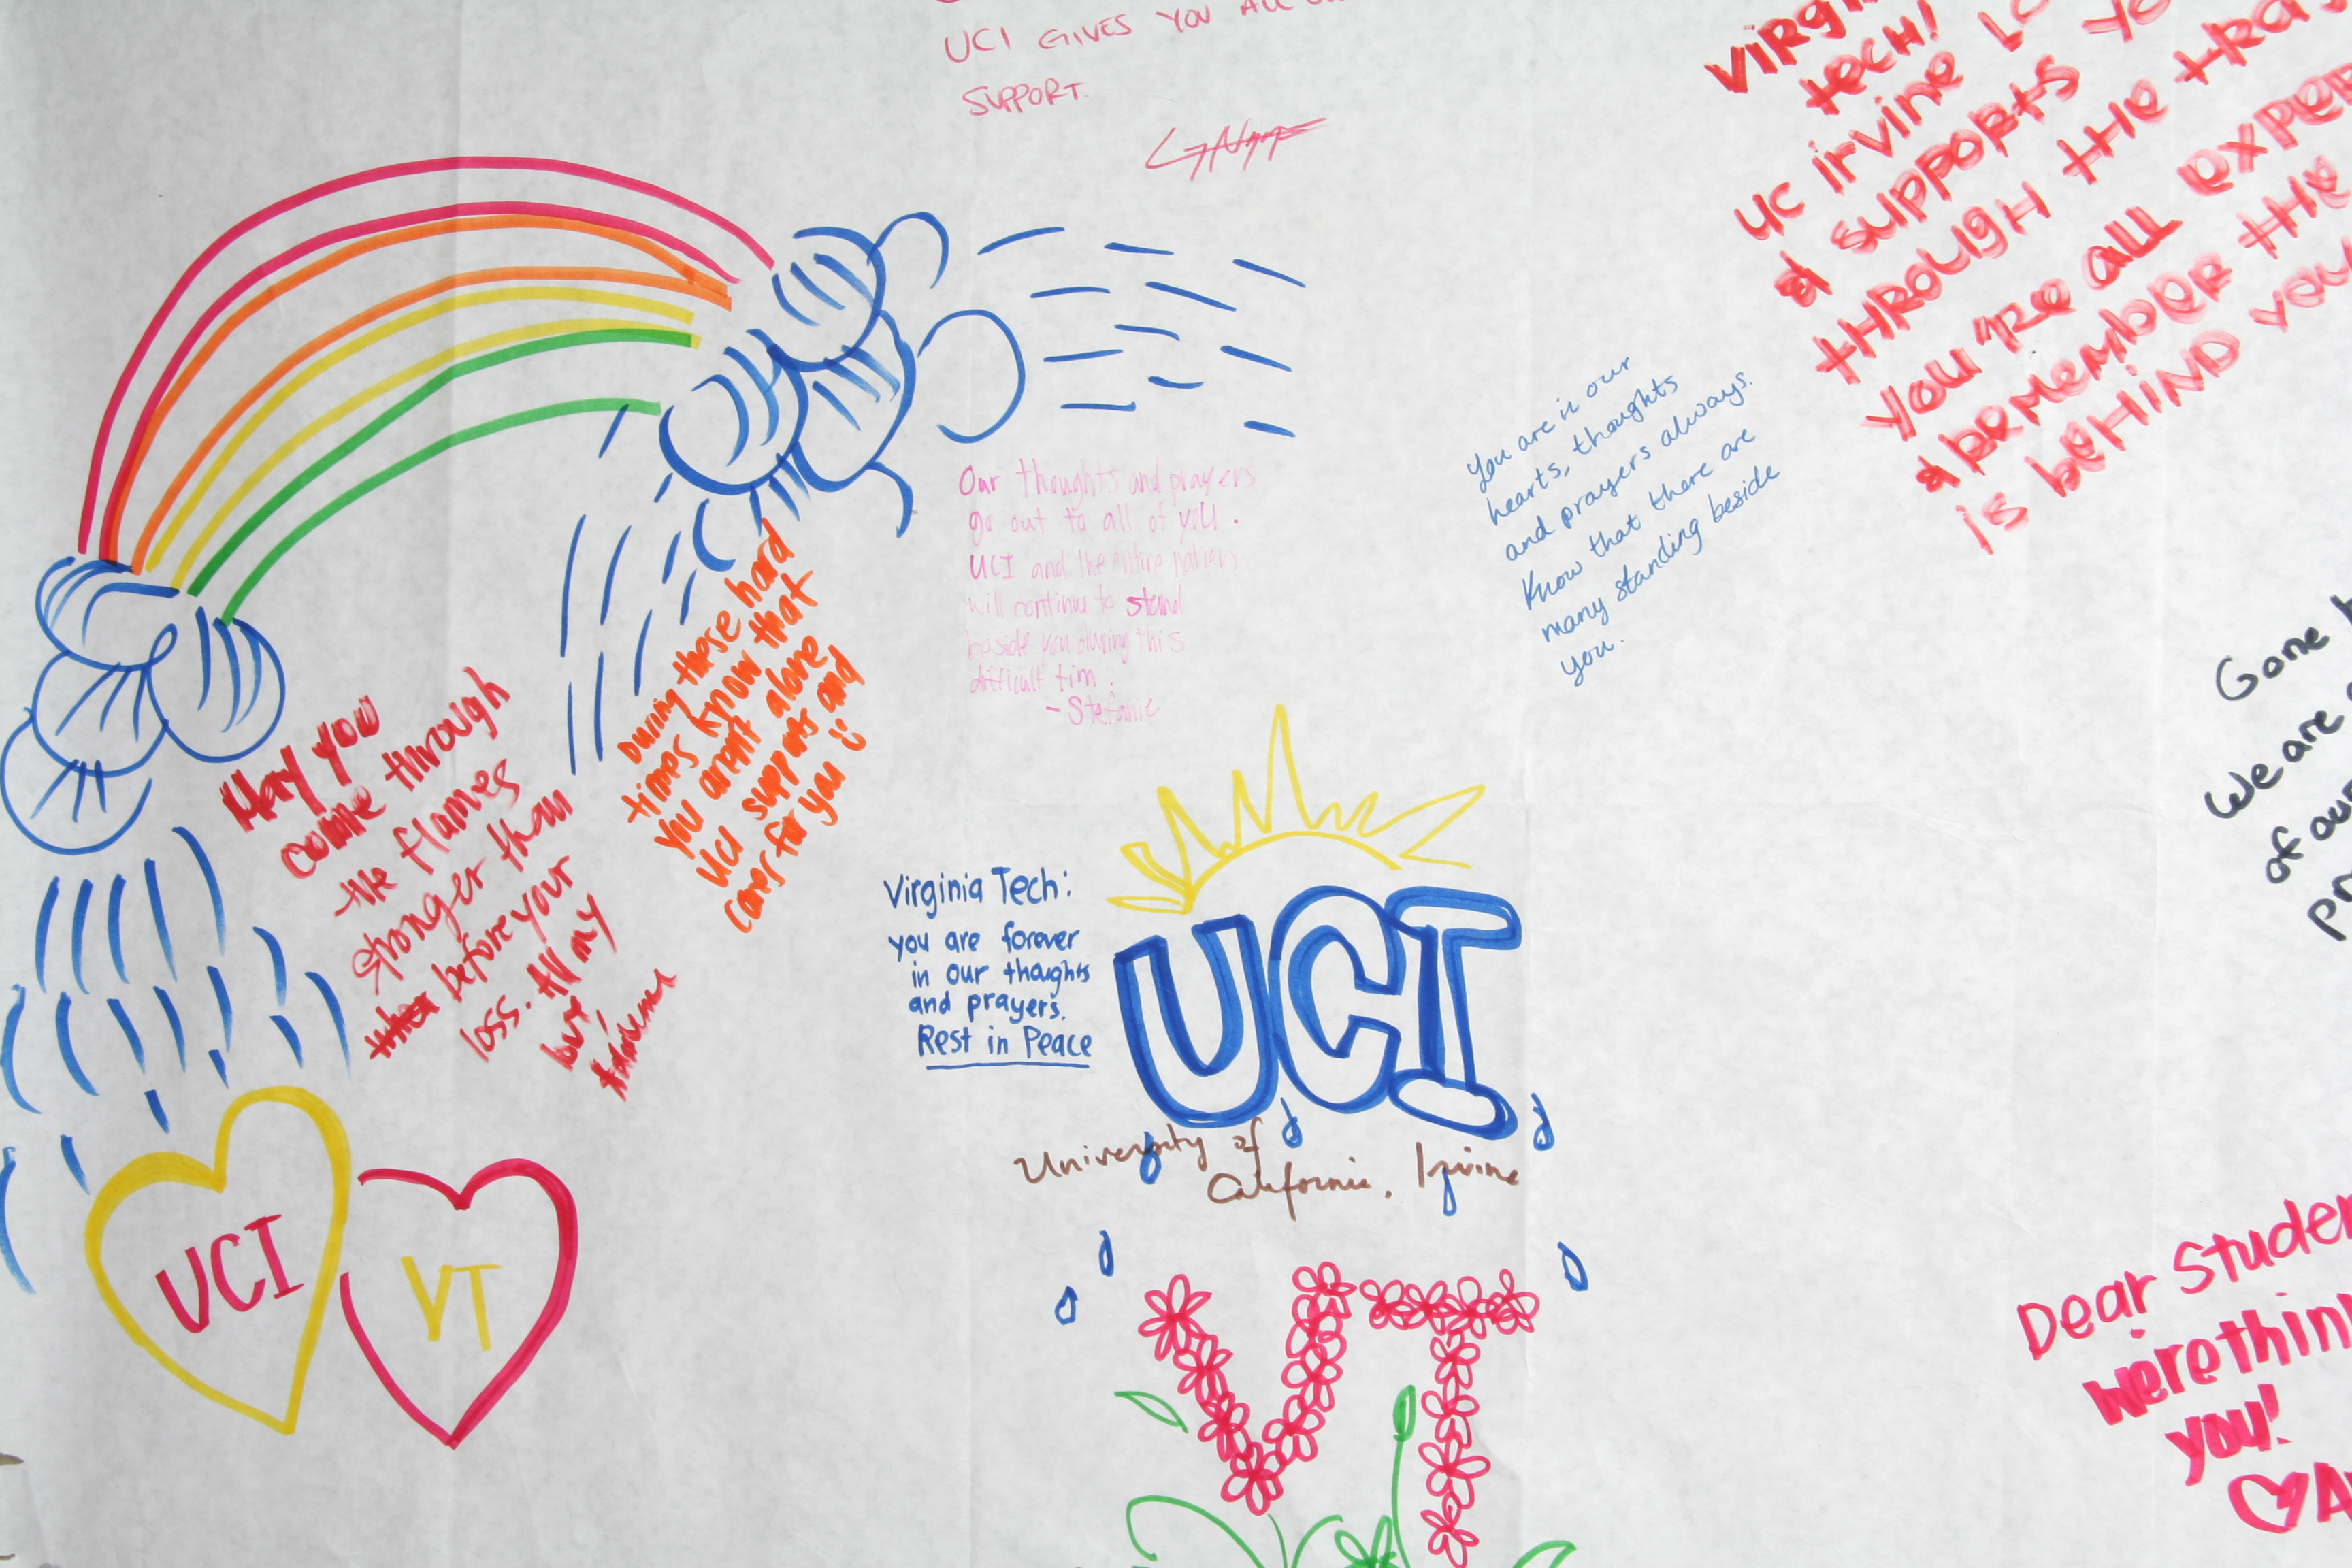 UCI GIVES YOU ALL
SUPPORT.
Virgin
tech!
UC irvine
& supports
through the
you're all exper
& remember the
is behind you
You are in our
hearts, thoughts
and prayers always.
Know that there are
many standing beside
you.
Our thoughts and prayers
go out to all of you.
UCI and the entire nation
will continue to stand
beside you during this
difficult tim.
- Stefanie
During these hard
times know that
you arent alone
UCI supports and
cares for you :)
May you
come through
the flames
stronger than
before your
loss. All my
love,
Gone
We are
of our
pr
Virginia Tech:
you are forever
in our thoughts
and prayers.
Rest in Peace
UCI
University of
California, Irvine
UCI
VT
VT
Dear Studen
We're thin
you!
♡A